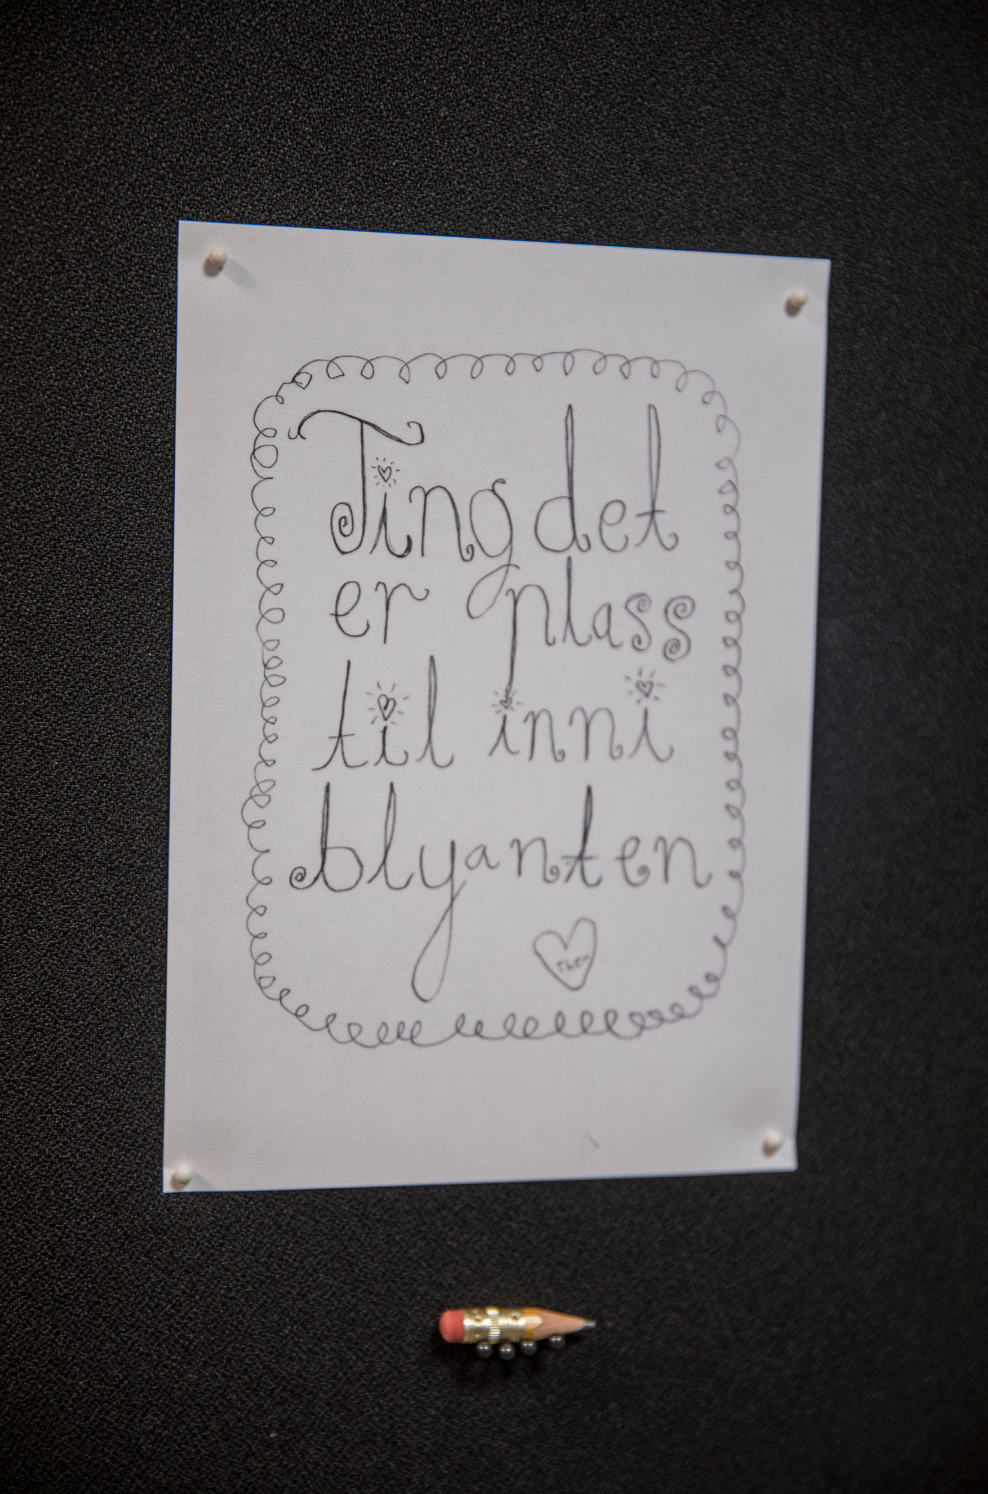 Ting det
er plass
til inni
blyanten
Thea